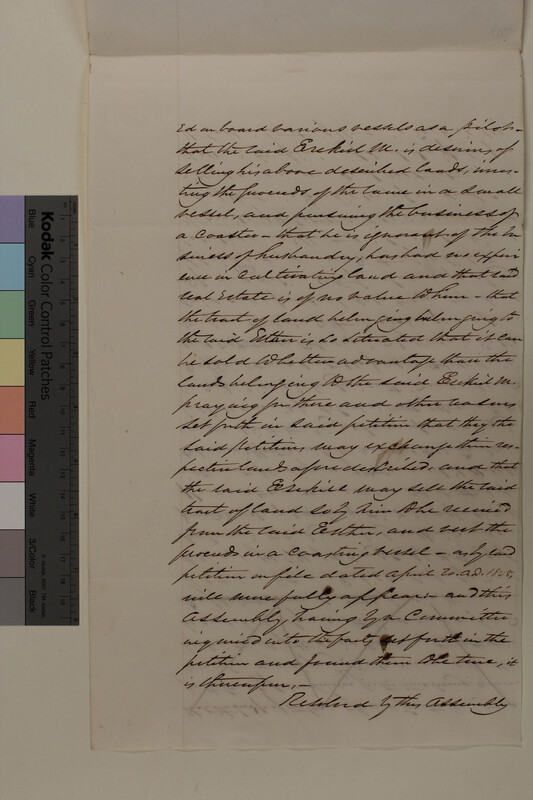 ed on board various vessels as a pilot—
that the said Ezekiel M. is desirous of
selling his above described lands, inves-
ting the proceeds of the same in a small
vessel, and pursuing the business of
a coaster— that he is ignorant of the bu
siness of husbandry, has had no experi
ence in cultivating land and that said
real Estate is of no value to him— that
the tract of land belonging belonging to
the said Esther is so situated that it can
be sold to better advantage than the
lands belonging to the said Ezekiel M.
praying for these and other reasons
set forth in said petition that they the
said petitioners may exchange their res-
pective lands afore described. and that
the said Ezekiell may sell the said
tract of land so by him to be received
from the said Esther, and vest the
proceeds in a coasting vessel— as by said
petition on file dated April 20. A.D. 1828,
will more fully appear. and this
Assembly, having by a Committee
inquired into the facts set forth in the
petition and found them to be true, it
is thereupon,—
Resolved by this Assembly
Kodak Color Control Patches
Blue
Cyan
Green
Yellow
Red
Magenta
White
3/Color
Black